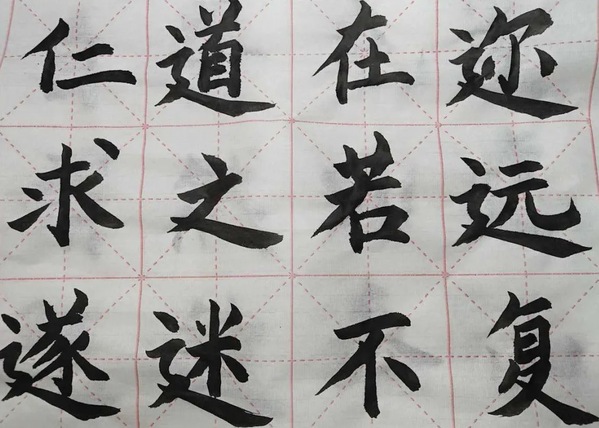 仁道在迩
求之若远
遂迷不复